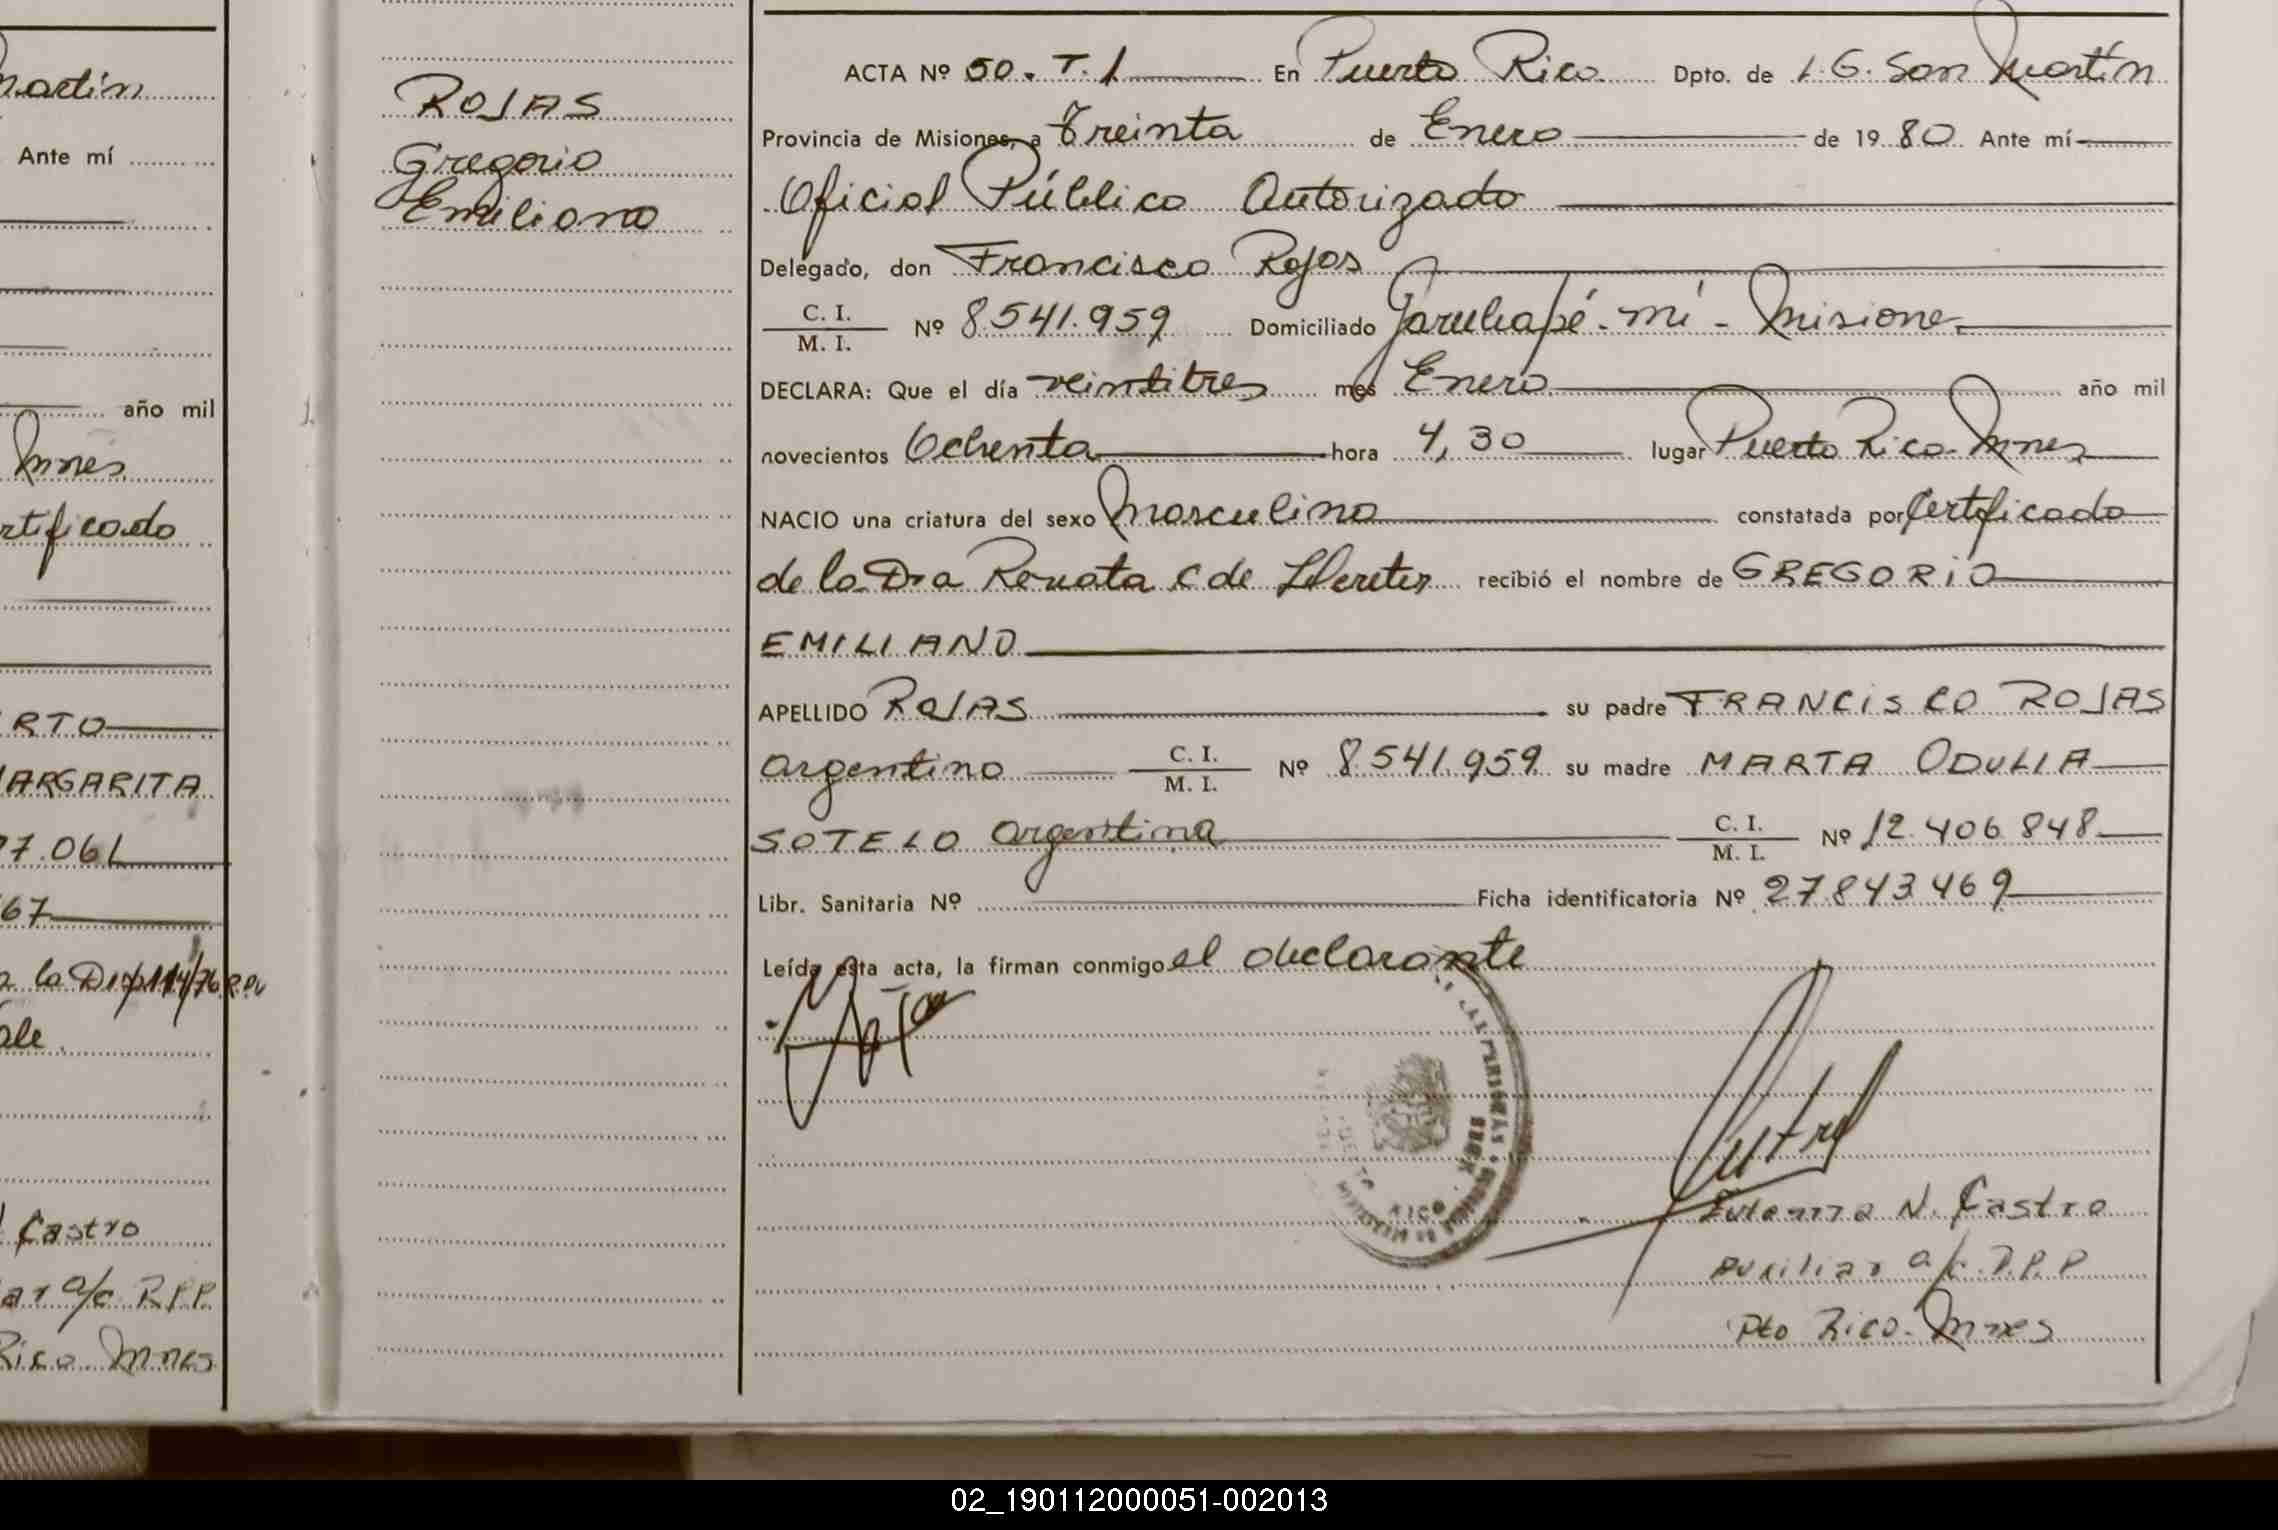 martín
Ante mí
año mil
Mnes
rtificado
RTO
MARGARITA
7.061
67
a la Disp 114/76 R.P.
ale.
Castro
ar a/c R.P.P.
Rico Mnes
ROJAS
Gregorio
Emiliano
ACTA Nº 50. T. 1 En Puerto Rico Dpto. de L. G. San Martín
Provincia de Misiones, a Treinta de Enero de 1980. Ante mí
Oficial Público Autorizado
Delegado, don Francisco Rojas
C. I. / M. I. Nº 8.541.959 Domiciliado Garuhapé-mí - Misiones
DECLARA: Que el día veintitres mes Enero año mil
novecientos Ochenta hora 4,30 lugar Puerto Rico-Mnes
NACIO una criatura del sexo Masculino constatada por Certificado
de la Dra Renata C de recibió el nombre de GREGORIO
EMILIANO
APELLIDO ROJAS su padre FRANCISCO ROJAS
Argentino C. I. / M. I. Nº 8.541.959 su madre MARTA ODULIA
SOTELO Argentina C. I. / M. I. Nº 12.406.848
Libr. Sanitaria Nº Ficha identificatoria Nº 27.843.469
Leída esta acta, la firman conmigo el declarante
N. Castro
Auxiliar a/c R.P.P
Pto Rico-Mnes
02_190112000051-002013